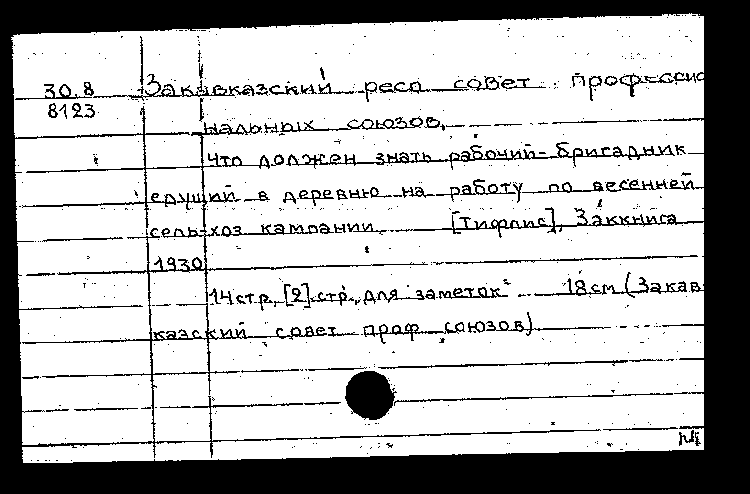 30.8 Закавказский респ совет профессио
8123
нальных союзов.
Что должен знать рабочий-бригадник
едущий в деревню на работу по весенней
сель-хоз кампании. [Тифлис], Заккнига
1930
14 стр, [2] стр. "для заметок" 18 см (Закав-
казский совет проф союзов)